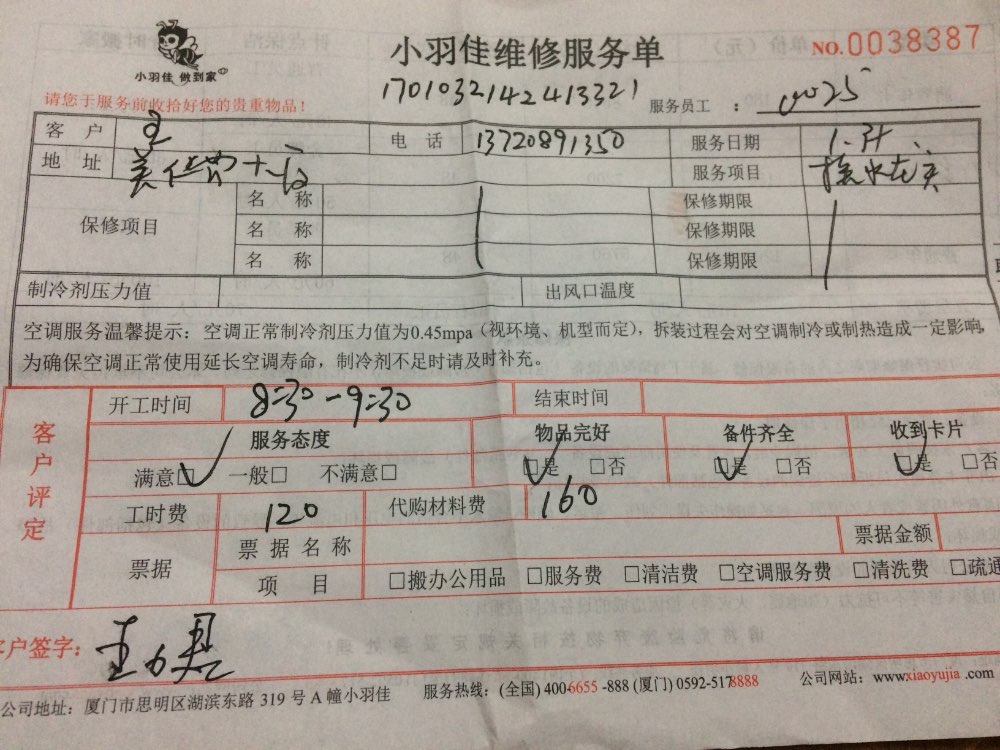 小羽佳维修服务单
NO.0038387
小羽佳 做到家
1701032142413321
请您于服务前收拾好您的贵重物品！
服务员工 ： 0025
客 户 王 电 话 13720891350 服务日期
地 址 服务项目
保修项目 名 称 保修期限
名 称 保修期限
名 称 保修期限
制冷剂压力值 出风口温度
空调服务温馨提示：空调正常制冷剂压力值为0.45mpa（视环境、机型而定），拆装过程会对空调制冷或制热造成一定影响，
为确保空调正常使用延长空调寿命，制冷剂不足时请及时补充。
客户评定
开工时间 8:30-9:30 结束时间
服务态度 物品完好 备件齐全 收到卡片
满意□ 一般□ 不满意□ □是 □否 □是 □否 □是 □否
工时费 120 代购材料费 160
票据 票据名称 票据金额
项 目 □搬办公用品 □服务费 □清洁费 □空调服务费 □清洗费 □疏通
客户签字：
公司地址：厦门市思明区湖滨东路 319 号 A 幢小羽佳 服务热线：(全国) 400-6655 -888 (厦门) 0592-5178888 公司网站：www.xiaoyujia .com